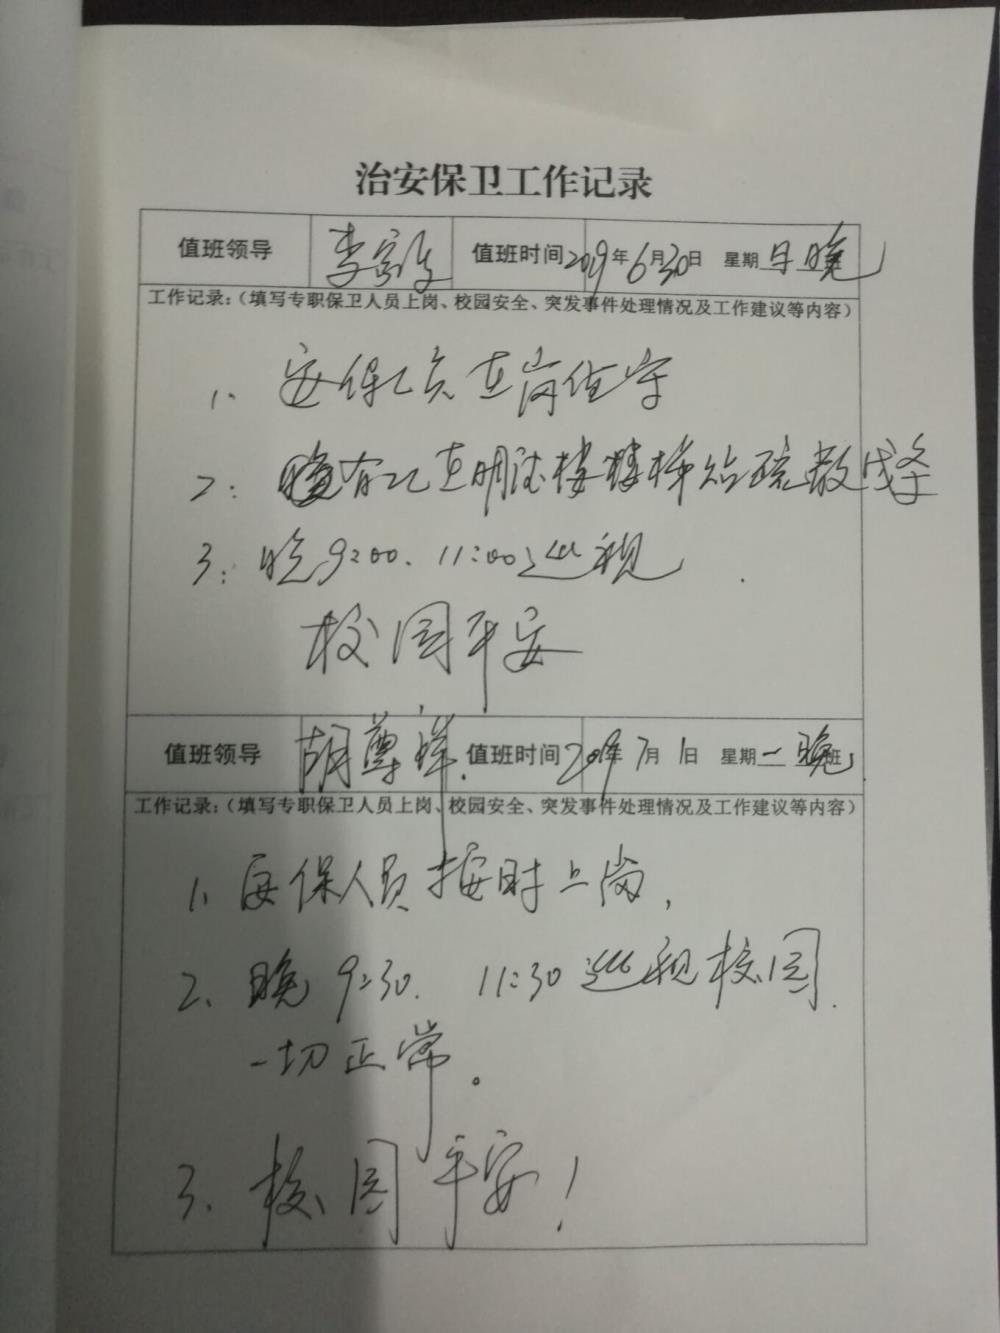 治安保卫工作记录
值班领导 李 值班时间 2019年6月30日 星期日晚
工作记录：（填写专职保卫人员上岗、校园安全、突发事件处理情况及工作建议等内容）
1、安保人员在岗值守
2：晚有 在明德楼楼梯 疏散
3：晚9:00、11:00巡视
校园平安
值班领导 胡尊祥 值班时间 2019年7月1日 星期一晚班
工作记录：（填写专职保卫人员上岗、校园安全、突发事件处理情况及工作建议等内容）
1、安保人员按时上岗，
2、晚9:30、11:30巡视校园
一切正常。
3、校园平安！